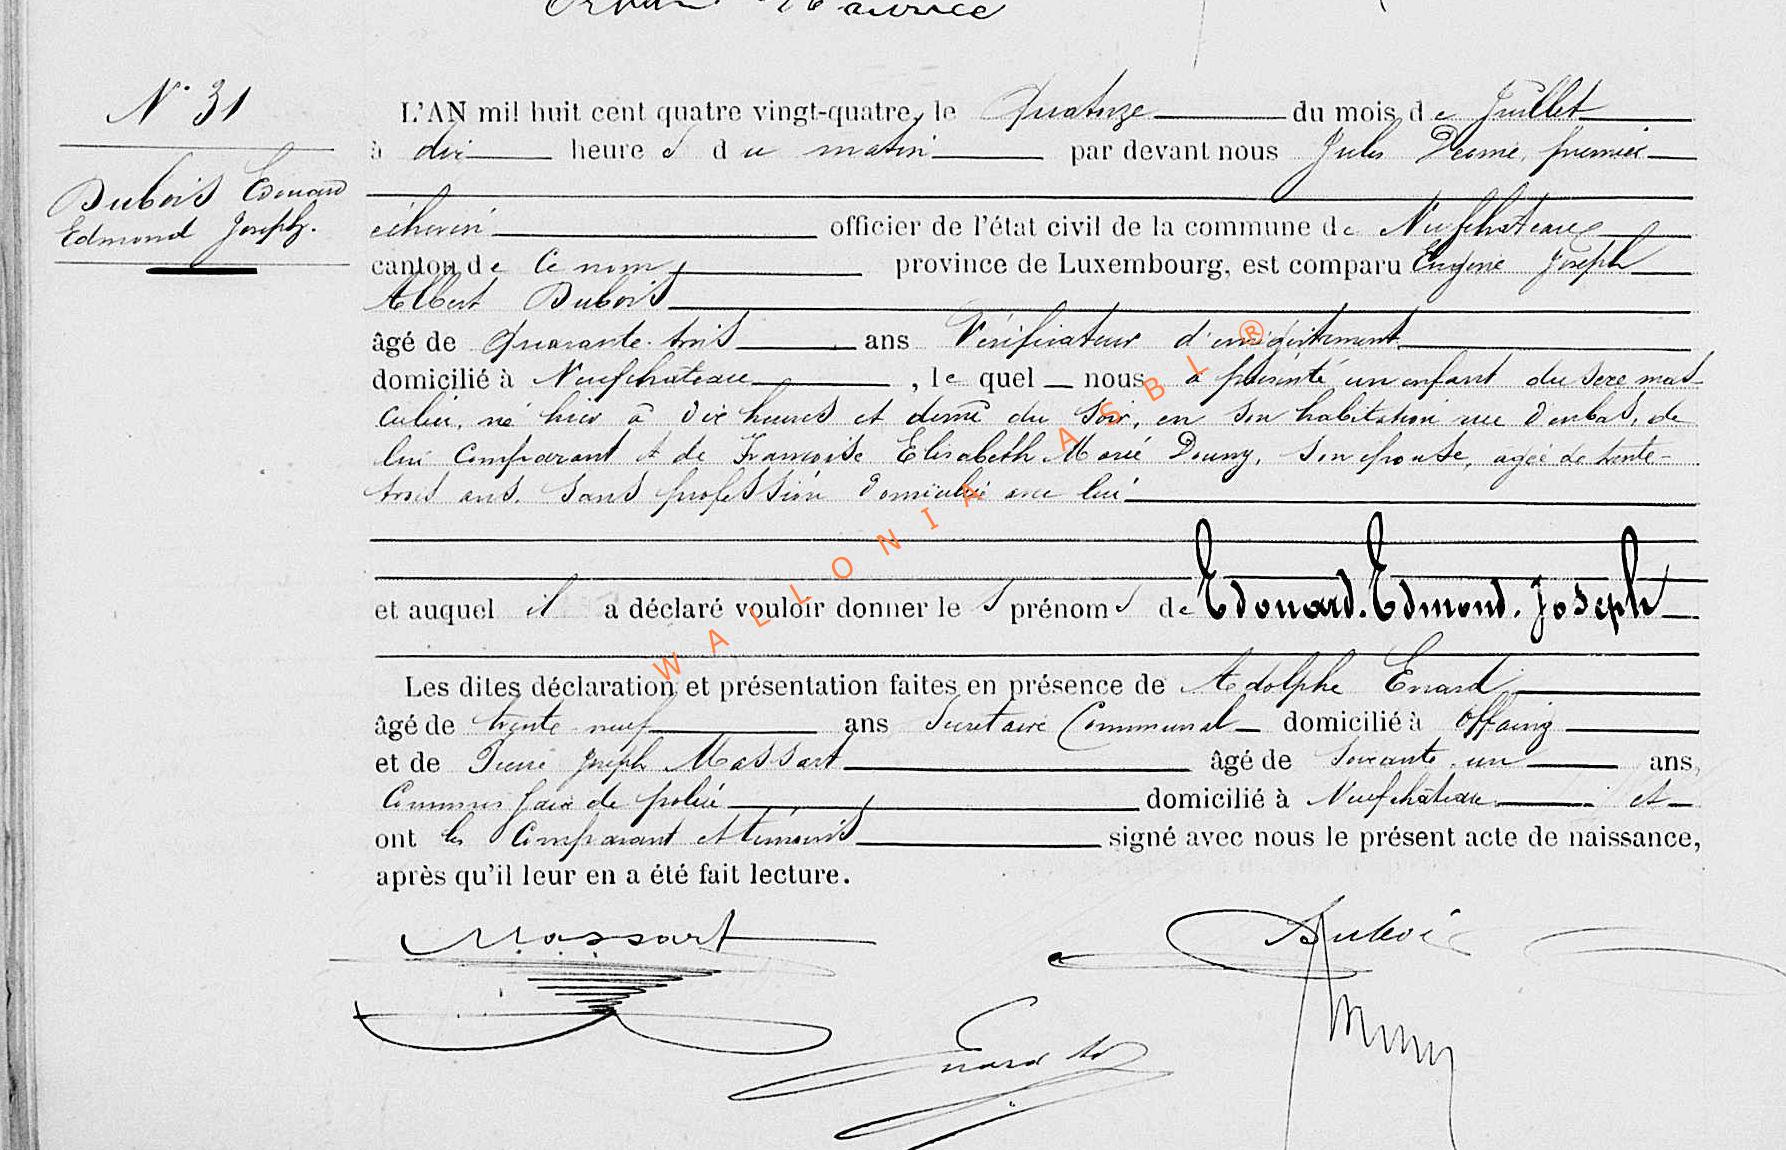 Maurice
N° 31
Dubois Edouard
Edmond Joseph.
L'AN mil huit cent quatre vingt-quatre, le Quatorze du mois de Juillet
à dix heures du matin par devant nous Jules premier
échevin officier de l'état civil de la commune de Neufchateau
canton de Ce nom, province de Luxembourg, est comparu Eugène Joseph
Albert Dubois
âgé de Quarante-trois ans Vérificateur d'enregistrement
domicilié à Neufchateau, lequel nous a présenté un enfant du sexe mas-
culin, né hier à dix heures et demie du soir, en son habitation rue d'enbas, de
lui Comparant et de Françoise Elisabeth Marie Douny, son épouse, agée de trente-
trois ans, sans profession domiciliée avec lui
et auquel il a déclaré vouloir donner les prénoms de Edouard. Edmond. Joseph
Les dites déclaration et présentation faites en présence de Adolphe Evrard
âgé de trente-neuf ans Secretaire Communal domicilié à Offaing
et de Pierre Joseph Massart âgé de Soixante-un ans,
Commissaire de police domicilié à Neufchâteau et
ont les Comparant et témoins signé avec nous le présent acte de naissance,
après qu'il leur en a été fait lecture.
Massart
Dubois
Evrard Ad
WALLONIA ASBL ®